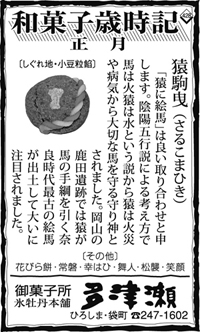 和菓子歳時記
正月
[しぐれ地・小豆粒餡]
猿駒曳(さるこまひき)
「猿に絵馬」は良い取り合わせと申
します。陰陽五行説による考え方で
馬は火猿は水という説から猿は火災
や病気から大切な馬を守る守り神と
されました。岡山の
鹿田遺跡では猿が
馬の手綱を引く奈
良時代最古の絵馬
が出土して大いに
注目されました。
[その他]
花びら餅・常磐・幸はひ・舞人・松襲・笑顔
御菓子所
氷牡丹本舗
多津瀬
ひろしま・袋町 ☎247-1602